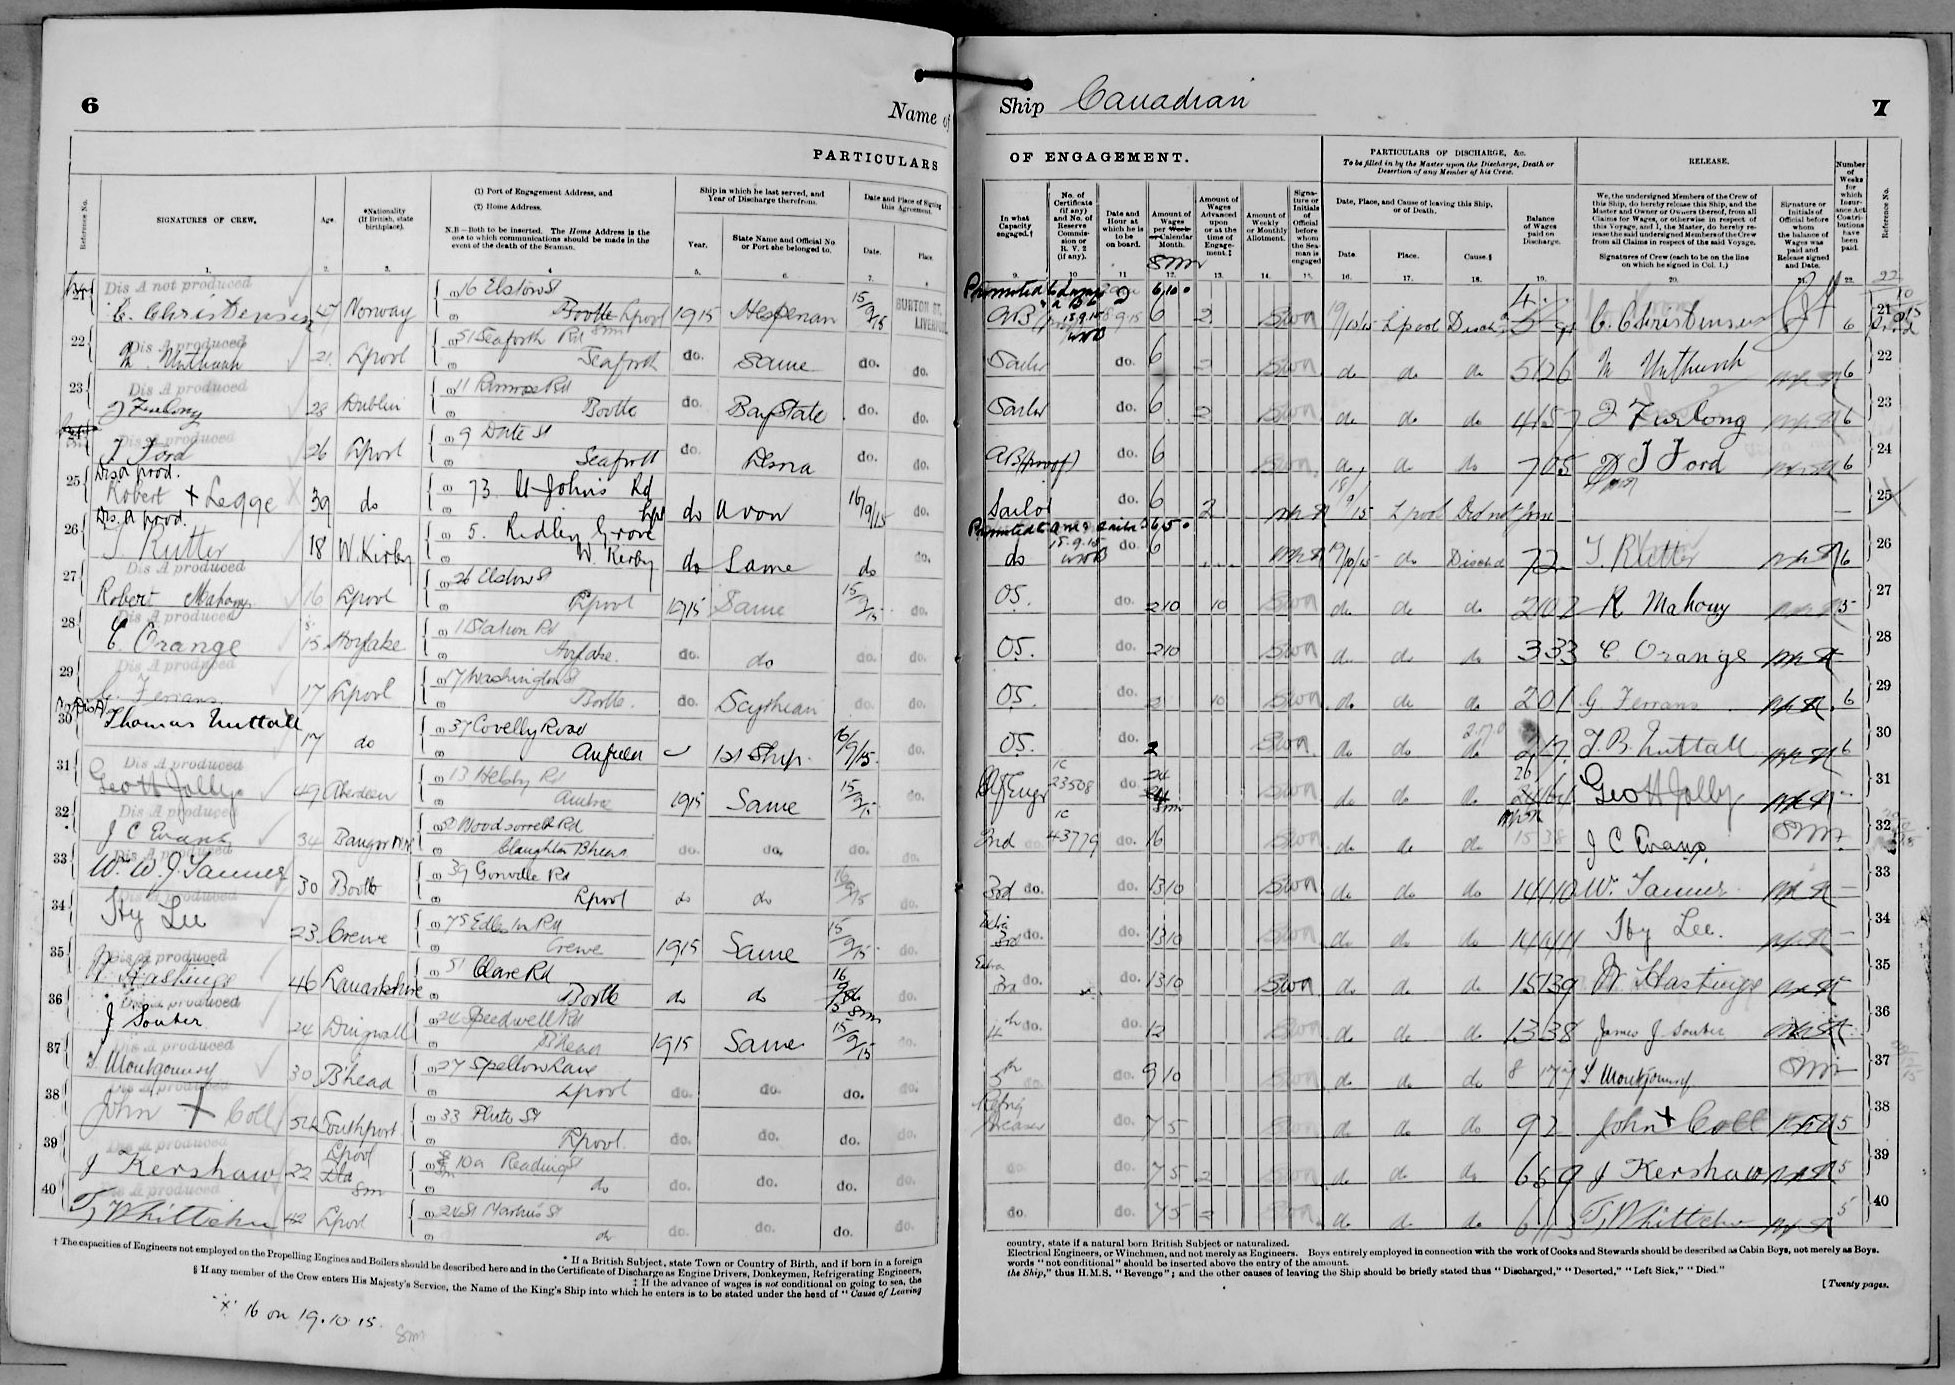 6
Name of
PARTICULARS
Reference No.
SIGNATURES OF CREW.
Age.
*Nationality (If British, state birthplace).
(1) Port of Engagement Address, and
(2) Home Address.
N.B.—Both to be inserted. The Home Address is the one to which communications should be made in the event of the death of the Seaman.
Ship in which he last served, and Year of Discharge therefrom.
Year.
State Name and Official No. or Port she belonged to.
Date and Place of Signing this Agreement.
Date.
Place.
1. 2. 3. 4. 5. 6. 7. 8.
21 Dis A not produced
C. Christensen 47 Norway 16 Elstow St Bootle Lpool 1915 Hesperian 15/9/15 BURTON ST. LIVERPOOL
22 Dis A produced
21 Lpool 51 Seaforth Rd Seaforth do. Same do. do.
23 Dis A produced
J Furlong 28 Dublin 11 Primrose Rd Bootle do. Bay State do. do.
24 Dis A produced
T. Ford 26 Lpool 9 Date St Seaforth do. do. do.
25 Dis a prod.
Robert + Legge 39 do 73 St Johns Rd Lpl do Avon 16/9/15 do.
26 Dis. a prod.
T Rutter 18 W. Kirby 5. Ridley Grove W. Kerby do Same do do.
27 Dis A produced
Robert Mahony 16 Lpool 26 Elstow St Lpool 1915 Same 15/9/15 do.
28 Dis A produced
C. Orange 15 Hoylake 1 Station Rd Hoylake. do. do do. do.
29 Dis A produced
G. Ferrans 17 Lpool 17 Washington St Bootle. do. Scythian do. do.
30 Thomas Nuttall 17 do 37 Covelly Road Anfield 1st Ship. 16/9/15. do.
31 Dis A produced
Geo H Jolly 49 Aberdeen 13 Helsby Rd Aintree 1915 Same 15/9/15 do.
32 Dis A produced
J C Evans 34 Bangor 8 Woodsorrel Rd Claughton B'head do. do. do. do.
33 Dis A produced
W. W. J. Tanner 30 Bootle 39 Gonville Rd Lpool do do 16/9/15 do.
34 Dis A produced
Hy Lee 23 Crewe 75 Edleston Rd Crewe 1915 Same 15/9/15 do.
35 Dis A produced
W Hastings 46 Lanarkshire 51 Clare Rd Bootle do do do.
36 Dis A produced
J Souter 24 Dingwall 24 Speedwell Rd B'head 1915 Same 15/9/15 do.
37 Dis A produced
T. Montgomery 30 B'head 27 Spellow Lane Lpool do. do. do. do.
38 Dis A produced
John + Coll 52 Southport 33 Pluto St Lpool. do. do. do. do.
39 Dis A produced
J Kershaw 22 Lpool 10a Reading St do do. do. do. do.
40 Dis A produced
T. Whittaker 42 Lpool 24 St Martins St do do. do. do. do.
† The capacities of Engineers not employed on the Propelling Engines and Boilers should be described here and in the Certificate of Discharge as Engine Drivers, Donkeymen, Refrigerating Engineers,
* If a British Subject, state Town or Country of Birth, and if born in a foreign
‡ If the advance of wages is not conditional on going to sea, the
§ If any member of the Crew enters His Majesty's Service, the Name of the King's Ship into which he enters is to be stated under the head of "Cause of Leaving
"x" 16 on 19.10.15.
Ship Canadian
7
OF ENGAGEMENT.
PARTICULARS OF DISCHARGE, &c.
To be filled in by the Master upon the Discharge, Death or Desertion of any Member of his Crew.
RELEASE.
In what Capacity engaged.†
No. of Certificate (if any) and No. of Reserve Commission or R.V.2 (if any).
Date and Hour at which he is to be on board.
Amount of Wages per Week or Calendar Month.
Amount of Wages Advanced upon or at the time of Engagement.‡
Amount of Weekly or Monthly Allotment.
Signature or Initials of Official before whom the Seaman is engaged
Date, Place, and Cause of leaving this Ship, or of Death.
Date.
Place.
Cause.§
Balance of Wages paid on Discharge.
We, the undersigned Members of the Crew of this Ship, do hereby release this Ship, and the Master and Owner or Owners thereof, from all Claims for Wages, or otherwise in respect of this Voyage, and I, the Master, do hereby release the said undersigned Members of the Crew from all Claims in respect of the said Voyage.
Signatures of Crew (each to be on the line on which he signed in Col. 1.)
Signature or Initials of Official before whom the balance of Wages was paid and Release signed and Date.
Number of Weeks for which Insurance Act Contributions have been paid.
Reference No.
9. 10 11 12. 13. 14. 15. 16. 17. 18. 19. 20. 21. 22.
Promoted Lamps 6 10 0
AB 6 2 19/10/15 Lpool Disch C. Christensen 6 21
Sailor do. 6 2 do do do 6 22
Sailor do. 6 2 do do do 4 15 7 J Furlong 6 23
AB (proof) do. 6 do do do 7 0 5 T Ford 6 24
Sailor do. 6 2 18/9/15 Lpool Did not join — 25
do do. 6 19/10/15 do Dischd 7 2 - T. Rutter 6 26
OS. do. 2 10 10 do do do 2 0 2 R Mahony 5 27
OS. do. 2 10 do do do 3 3 3 C Orange 28
OS. do. 2 10 do do do 2 0 1 G Ferrans 6 29
OS. do. 2 do do do T. B. Nuttall 6 30
Ch Engr 23508 do. 24 do do do Geo H Jolly 31
2nd do. 43779 do. 16 do do do 15 3 8 J C Evans. 32
3rd do. do. 13 10 do do do W. Tanner 33
Extra 3rd do. do. 13 10 do do do Hy Lee. 34
Extra 3rd do. do. 13 10 do do do 15 13 9 W Hastings 35
4th do. do. 12 do do do 13 3 8 James J Souter 36
5th do. do. 9 10 do do do T Montgomery 37
Refrig Greaser do. 7 5 do do do 9 2 John + Coll 5 38
do. do. 7 5 2 do do do J Kershaw 5 39
do. do. 7 5 2 do do do T. Whittaker 5 40
country, state if a natural born British Subject or naturalized.
Electrical Engineers, or Winchmen, and not merely as Engineers. Boys entirely employed in connection with the work of Cooks and Stewards should be described as Cabin Boys, not merely as Boys.
words "not conditional" should be inserted above the entry of the amount.
the Ship," thus H.M.S. "Revenge"; and the other causes of leaving the Ship should be briefly stated thus "Discharged," "Deserted," "Left Sick," "Died."
[Twenty pages.